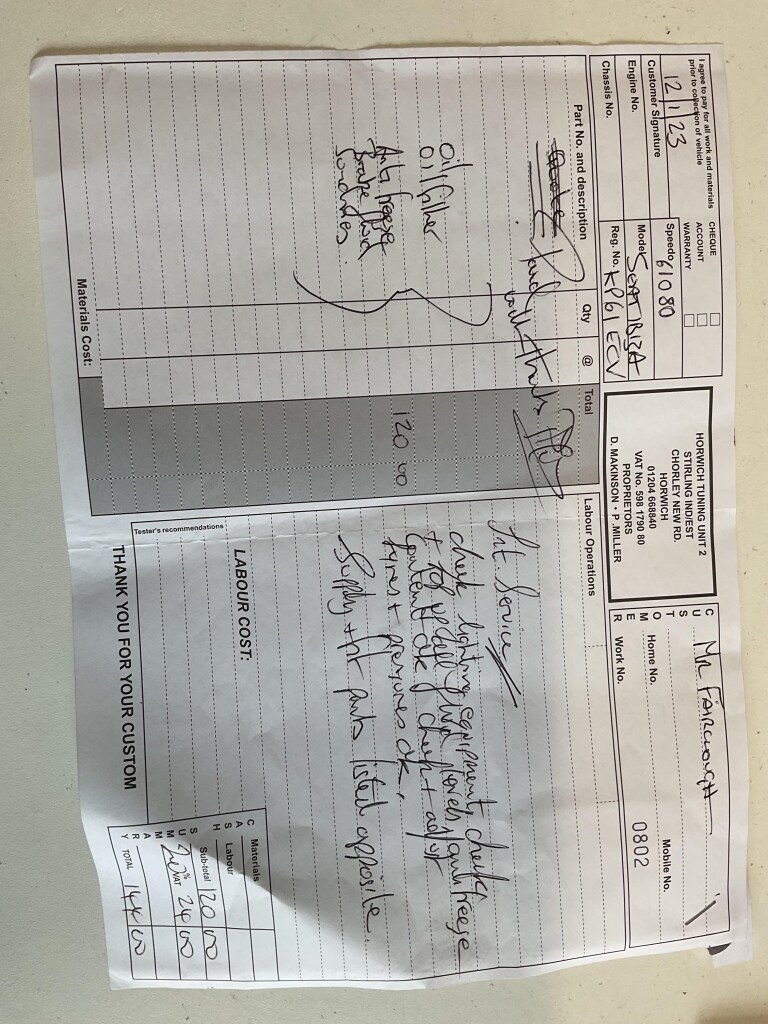 I agree to pay for all work and materials
prior to collection of vehicle
12/1/23
Customer Signature
Engine No.
Chassis No.
CHEQUE
ACCOUNT
WARRANTY
Speedo 61080
Model SEAT IBIZA
Reg. No. KP61 ECV
HORWICH TUNING UNIT 2
STIRLING IND/EST
CHORLEY NEW RD.
HORWICH
01204 668840
VAT No. 598 1790 80
PROPRIETORS
D. MAKINSON - P .MILLER
CUSTOMER
MR FAIRCLOUGH
Home No.
Mobile No.
Work No.
0802
Part No. and description
Qty
@
Total
Paid
with thanks
Oil filter
Oil
Anti freeze
Brake fluid
Sundries
120 00
Materials Cost:
Labour Operations
Int Service
check lighting equipment check
+ top up all fluid levels, antifreeze
content ok, check + adjust
tyres + pressures ok,
Supply + fit parts listed opposite
LABOUR COST:
Tester's recommendations
THANK YOU FOR YOUR CUSTOM
CASH SUMMARY
Materials
Labour
Sub-total 120 00
20% VAT 24 00
TOTAL 144 00